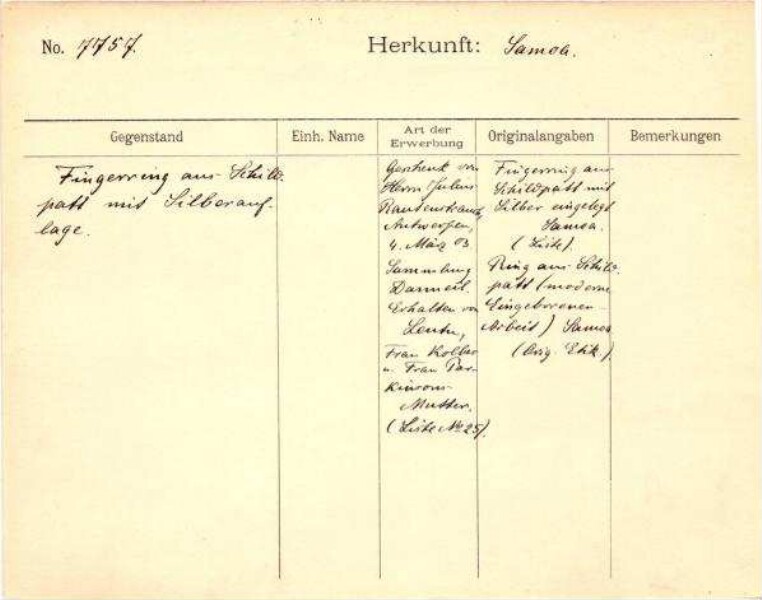 No. 7757.
Herkunft: Samoa.
Gegenstand
Einh. Name
Art der
Erwerbung
Originalangaben
Bemerkungen
Fingerring aus Schild
patt mit Silberauf-
lage.
Geschenk von
Herrn Julius
Rautenstrauch,
Antwerpen,
4. März 03
Sammlung
Erhalten von
Frau Kolbe
u. Frau Par-
kinsons
Mutter.
(Liste No 25).
Fingerring aus
Schildpatt mit
Silber eingelegt
Samoa.
(Liste).
Ring aus Schild.
patt (moderne
Eingeborenen-
Arbeit) Samoa
(Orig. Etik.)